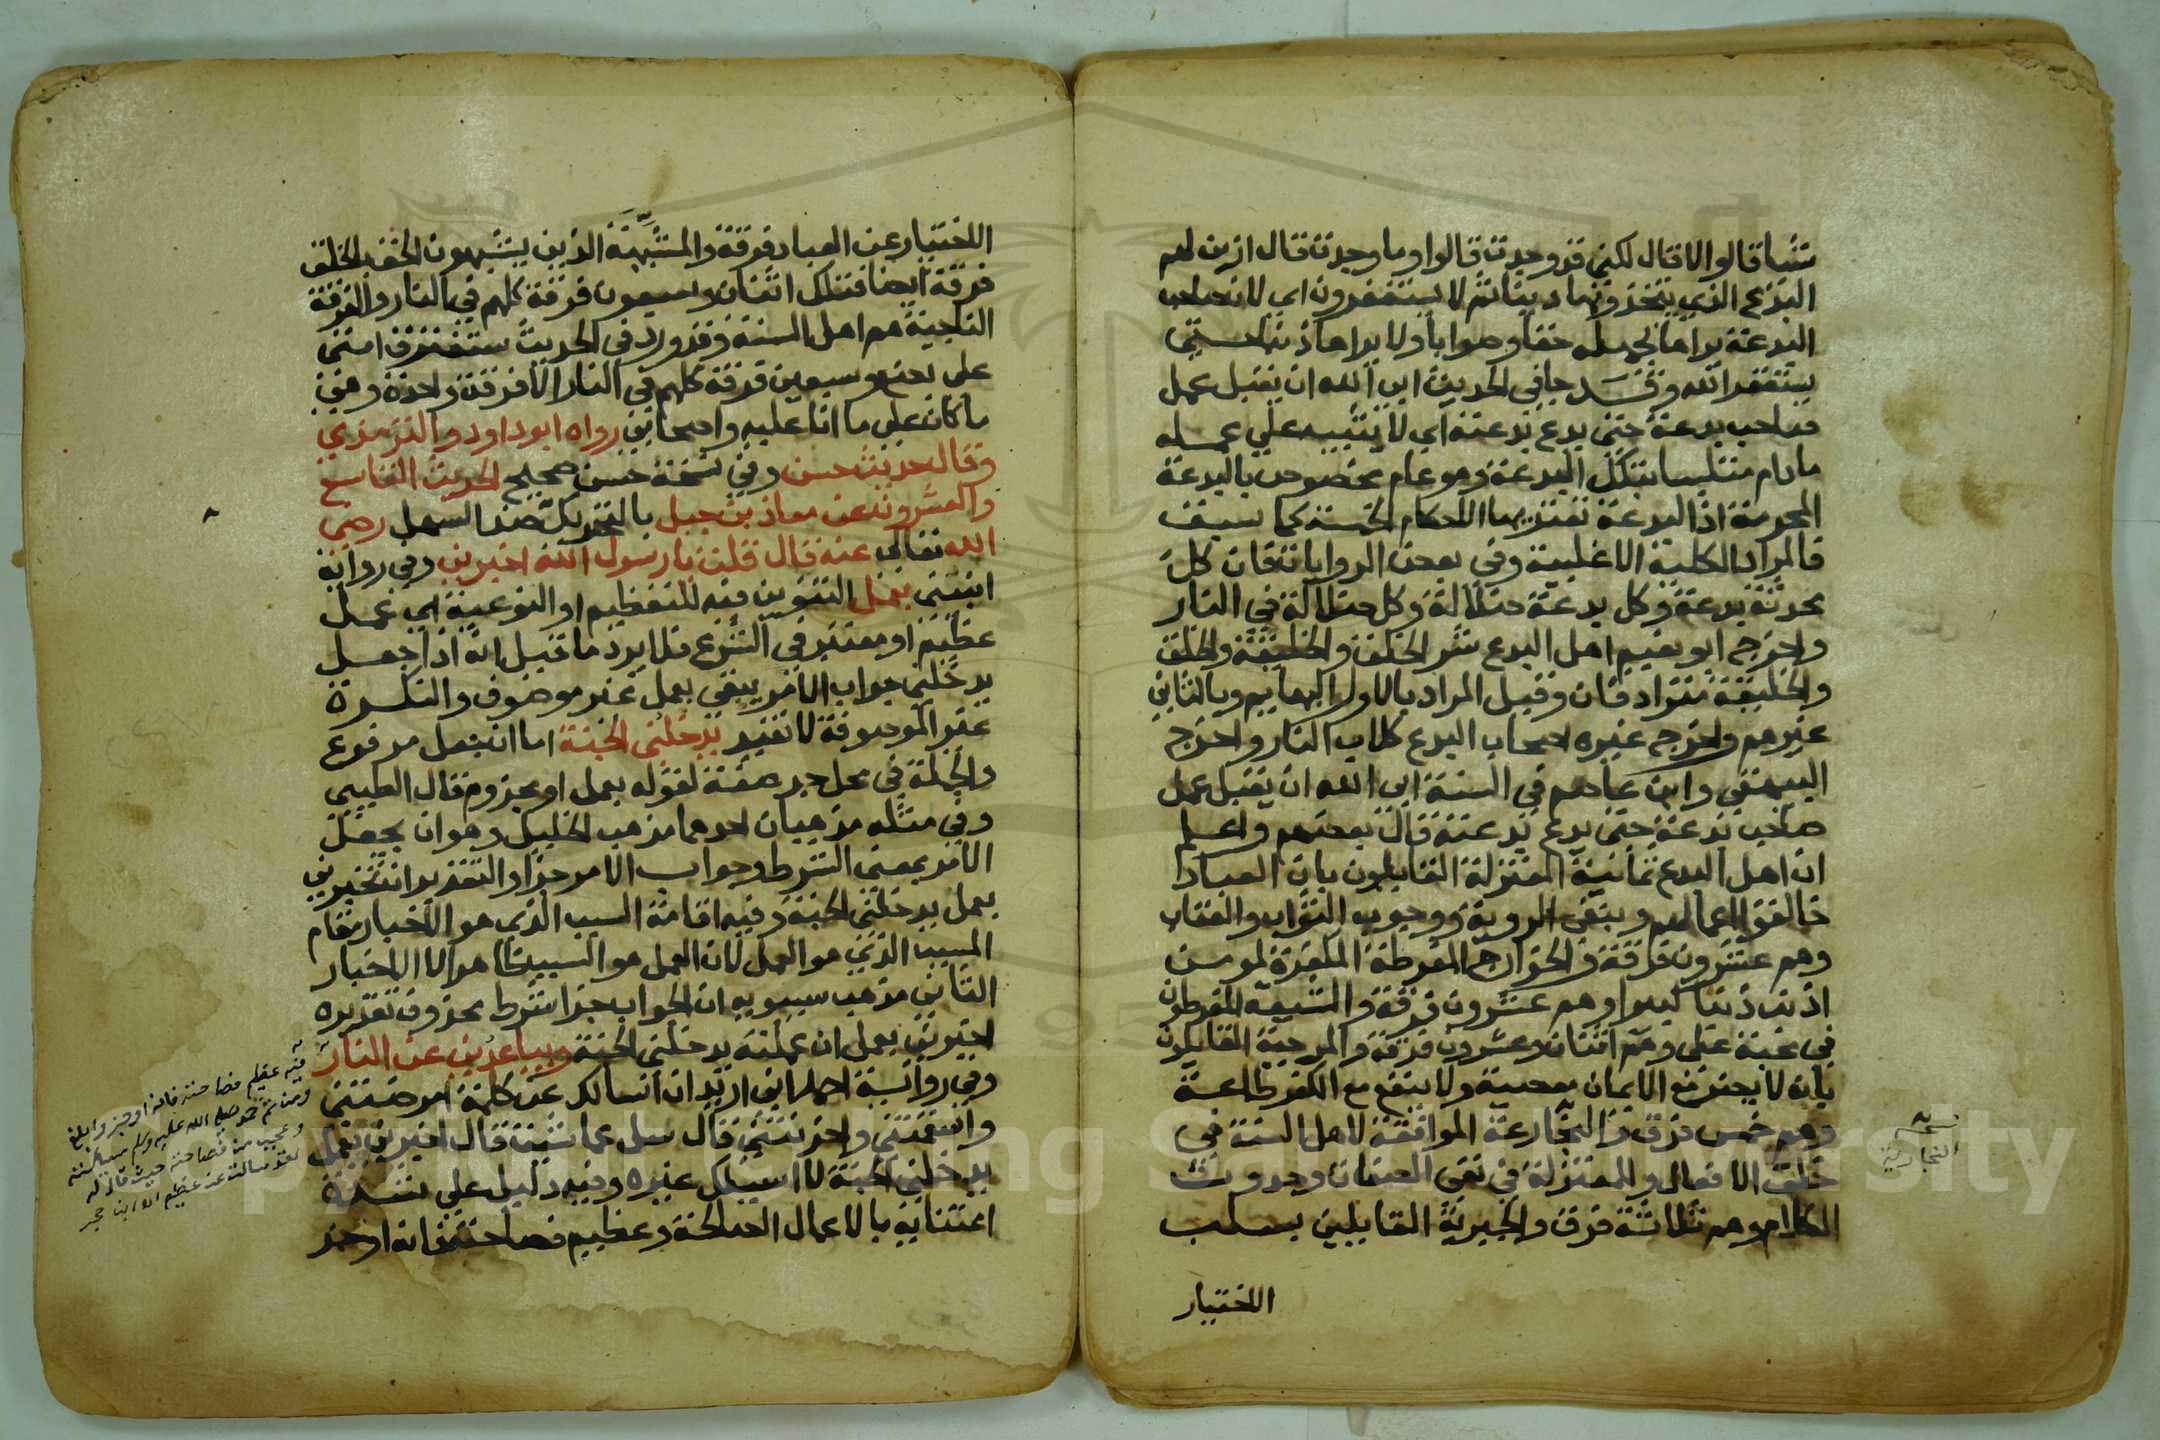 شيئا قالوا لا قال لكني قد وجدت قالوا وما وجدت قال ازين لهم
البدع الذي يتخذونها دينا ثم لا يستغفرون اي لان صاحب
البدعة يراها بجهله حقا وصوابا ولا يراها ذنبا حتى
يستغفر الله وقد جا في الحديث ابى الله ان يقبل عمل
صاحب بدعة حتى يدع بدعته اي لا يثيبه علي عمله
مادام متلبسا بتلك البدعة وهو عام مخصوص بالبدعة
المحرمة اذ البدعة تعتريها الاحكام الخمسة كما سبق
فالمراد الكلية الاغلبية وفي بعض الروايات فان كل
محدثة بدعة وكل بدعة ضلالة وكل ضلالة في النار
واخرج ابو نعيم اهل البدع شر الخلق والخليقة والخلق
والخليقة مترادفان وقيل المراد بالاول البهايم وبالثاني
غيرهم واخرج غيره اصحاب البدع كلاب النار واخرج
البيهقي وابن عاصم في السنة ابى الله ان يقبل عمل
صاحب بدعة حتى يدع بدعته قال بعضهم واعلم
ان اهل البدع ثمانية المعتزلة القايلون بان العباد ا
خالقوا اعمالهم وبنفي الروية ووجوب الثواب والعقاب
وهم عشرون فرقة والخوارج المفرطة المكفرة لمومن
اذنب ذنبا كبيرا وهم عشرون فرقة والشيعة المفرطون
في محبة علي وهم اثنتان وعشرون فرقة والمرجية القايلون
بانه لا يضر مع الايمان معصية ولا ينفع مع الكفر طاعة
وهم خمس فرق والنجارعة الموافقة لاهل السنة في
خلق الافعال والمعتزلة في نفي الصفات وحدوث
الكلام وهم ثلاثة فرق والجبرية القايلين بسلب
الاختيار
نسخه
النجارية
الاختيار عن العباد فرقة والمشبهة الذين يشبهون الحق بالخلق
فرقة ايضا فتلك اثنتان وسبعون فرقة كلهم في النار والفرقة
الناجية هم اهل السنة وقد ورد في الحديث ستفترق امتي
على بضع وسبعين فرقة كلهم في النار الا فرقة واحدة وهي
ما كان علي ما انا عليه واصحابي رواه ابو داود والترمذي
وقال حديث حسن وفي نسخة حسن صحيح الحديث التاسع
والعشرون عن معاذ بن جبل بالتحريك ضد السهل رضي
الله تعالي عنه قال قلت يا رسول الله اخبرني وفي رواية
انبئني بعمل التنوين فيه للتعظيم او النوعية اي عمل
عظيم او معتبر في الشرع فلا يرد ما قيل انه اذا جعل
يدخلني جواب الامر يبقى بعمل غير موصوف والنكرة
غير الموصوفة لا تفيد يدخلني الجنة اما ان يجعل مرفوع
والجملة في محل جر صفة لقوله بعمل او مجزوم قال الطيبي
وفي مثله مذهبان احدهما مذهب الخليل وهو ان يجعل
الامر بمعنى الشرط وجواب الامر جزا والتقدير ان تخبرني
بعمل يدخلني الجنة وفيه اقامة السبب الذي هو الاخبار مقام
المسبب الذي هو العمل لان العمل هو السبب ظاهرا لا الاخبار
الثاني مذهب سيبويه ان الجواب جزا شرط محذوف تقديره
اخبرني بعمل ان عملته يدخلني الجنة ويباعدني عن النار
وفي رواية احمد اني اريد ان اسالك عن كلمة امرضتني
واسقمتني واحزنتني قال سل عما شيت قال اخبرني بعمل
يدخلني الجنة لا اسيلك غيره وفيه دليل علي شدة
اعتنايه بالاعمال الصالحة وعظيم فصاحته فانه اوجز
فيه عظيم فصاحته فانه اوجز وابلغ
ومن ثم صلى الله عليه وسلم
وعجب من فصاحته حيث قال له
لقد سالت عن عظيم اه ابن حجر